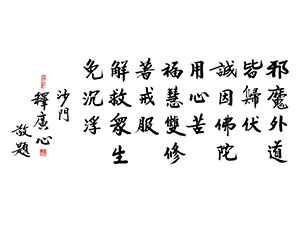 邪魔外道
皆歸伏
誠因佛陀
用心苦
福慧雙修
善戒服
解救眾生
免沉浮
沙門
釋廣心
敬題